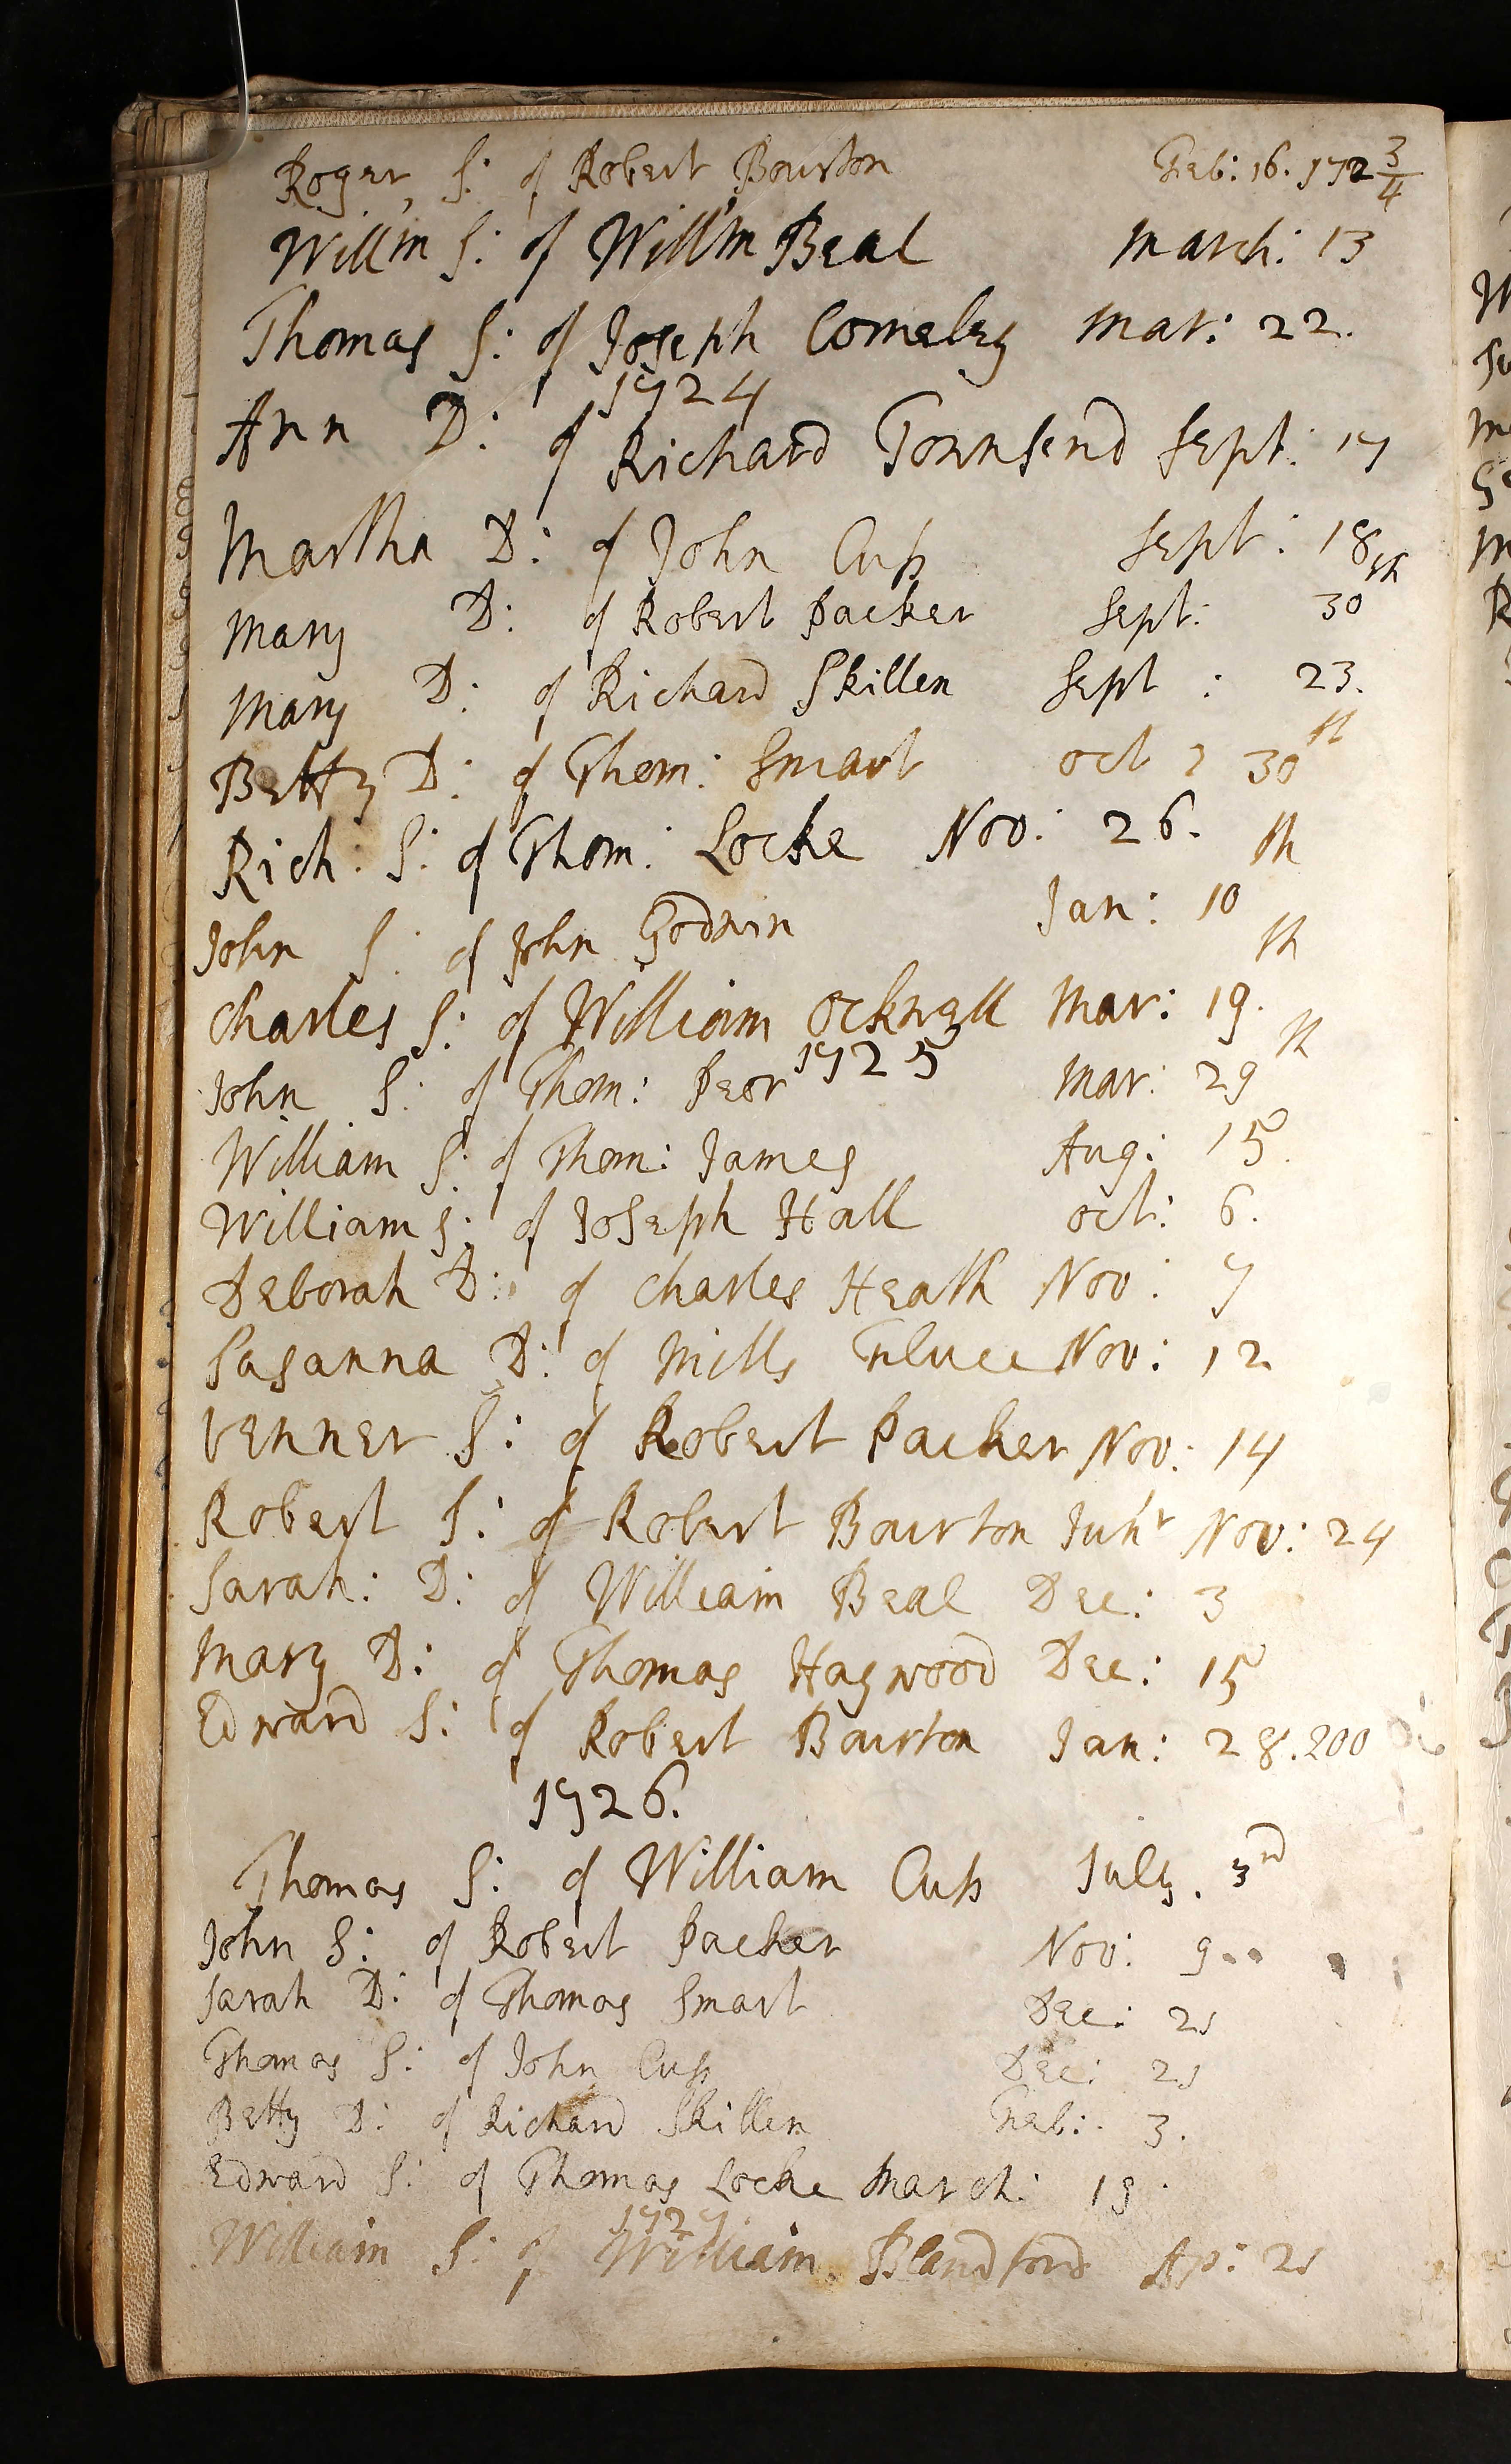 Roger, S: of Robert Bourton Feb: 16. 172 3/4
Will'm S: of Will'm Beal March: 13
Thomas S: of Joseph Comeley Mar: 22.
1724
Ann D: of Richard Townsend Sept: 17
Martha D: of John Cuss Sept: 18th
Mary D: of Robert Packer Sept: 30
Mary D: of Richard Skillen Sept: 23.
Betty D: of Thom: Smart Oct: 30th
Rich: S: of Thom: Locke Nov: 26.
John S: of John Godwin Jan: 10th
Charles S: of William Ocknell Mar: 19th.
1725
John S: of Thom: Peor Mar: 29th
William S: of Thom: James Aug: 15.
William S: of Joseph Hall Oct: 6.
Deborah D: of Charles Heath Nov: 7
Susanna D: of Mills Nov: 12
Venner S: of Robert Packer Nov: 14
Robert S: of Robert Bourton Jun'r Nov: 24
Sarah: D: of William Beal Dec: 3
Mary D: of Thomas Haywood Dec: 15
Edward S: of Robert Bourton Jan: 28. 200
1726.
Thomas S: of William Cuss July. 3rd
John S: of Robert Packer Nov: 9
Sarah D: of Thomas Smart Dec: 21
Thomas S: of John Cuss Dec: 21
Betty D: of Richard Skillen Feb: 3.
Edward S: of Thomas Locke March: 19.
1727
William S: of William Blandford Ap: 21